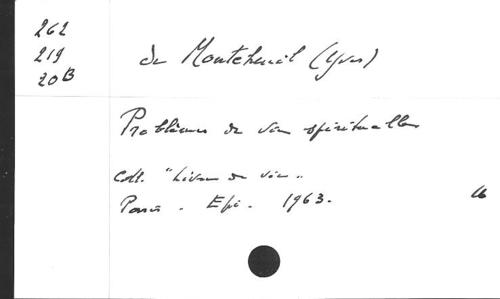 262
219
20B
de Montcheuil (Yves)
Problèmes de vie spirituelle
Coll. "Livre de vie"
Paris. Epi. 1963.